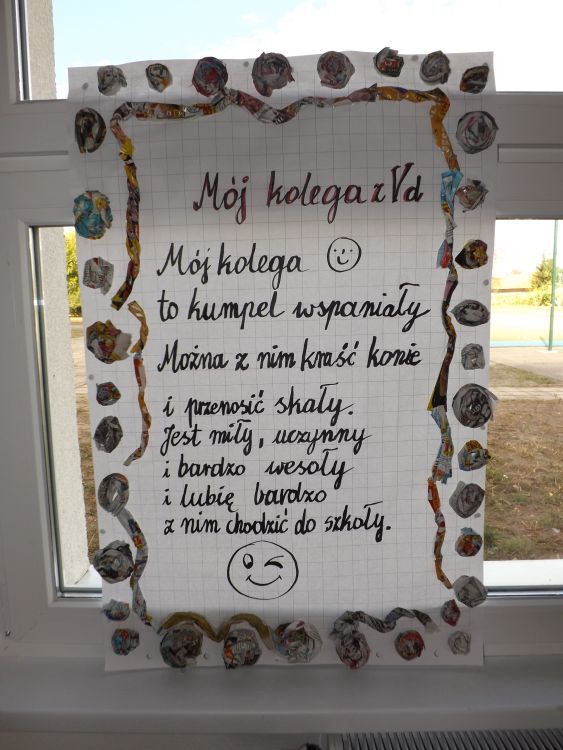 Mój kolega z Vd
Mój kolega
to kumpel wspaniały
Można z nim kraść konie
i przenosić skały.
Jest miły, uczynny
i bardzo wesoły
i lubię bardzo
z nim chodzić do szkoły.